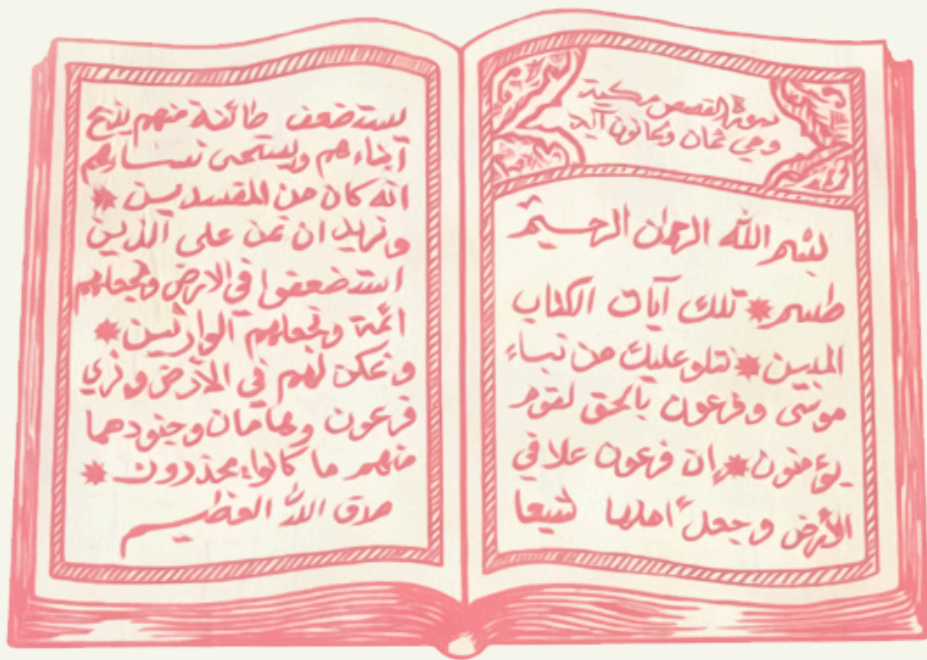 سورة القصص مكية
وهي ثمان وثمانون آية
بسم الله الرحمان الرحيم
طسم * تلك آيات الكتاب
المبين * نتلو عليك من نباء
موسى وفرعون بالحق لقوم
يؤمنون * إن فرعون علا في
الأرض وجعل أهلها شيعا
يستضعف طائفة منهم يذبح
أبناءهم ويستحي نساءهم
انه كان من المفسدين *
ونريد ان نمن على الذين
استضعفوا في الارض ونجعلهم
ائمة ونجعلهم الوارثين *
ونمكن لهم في الأرض ونري
فرعون وهامان وجنودهما
منهم ما كانوا يحذرون *
صدق الله العظيم